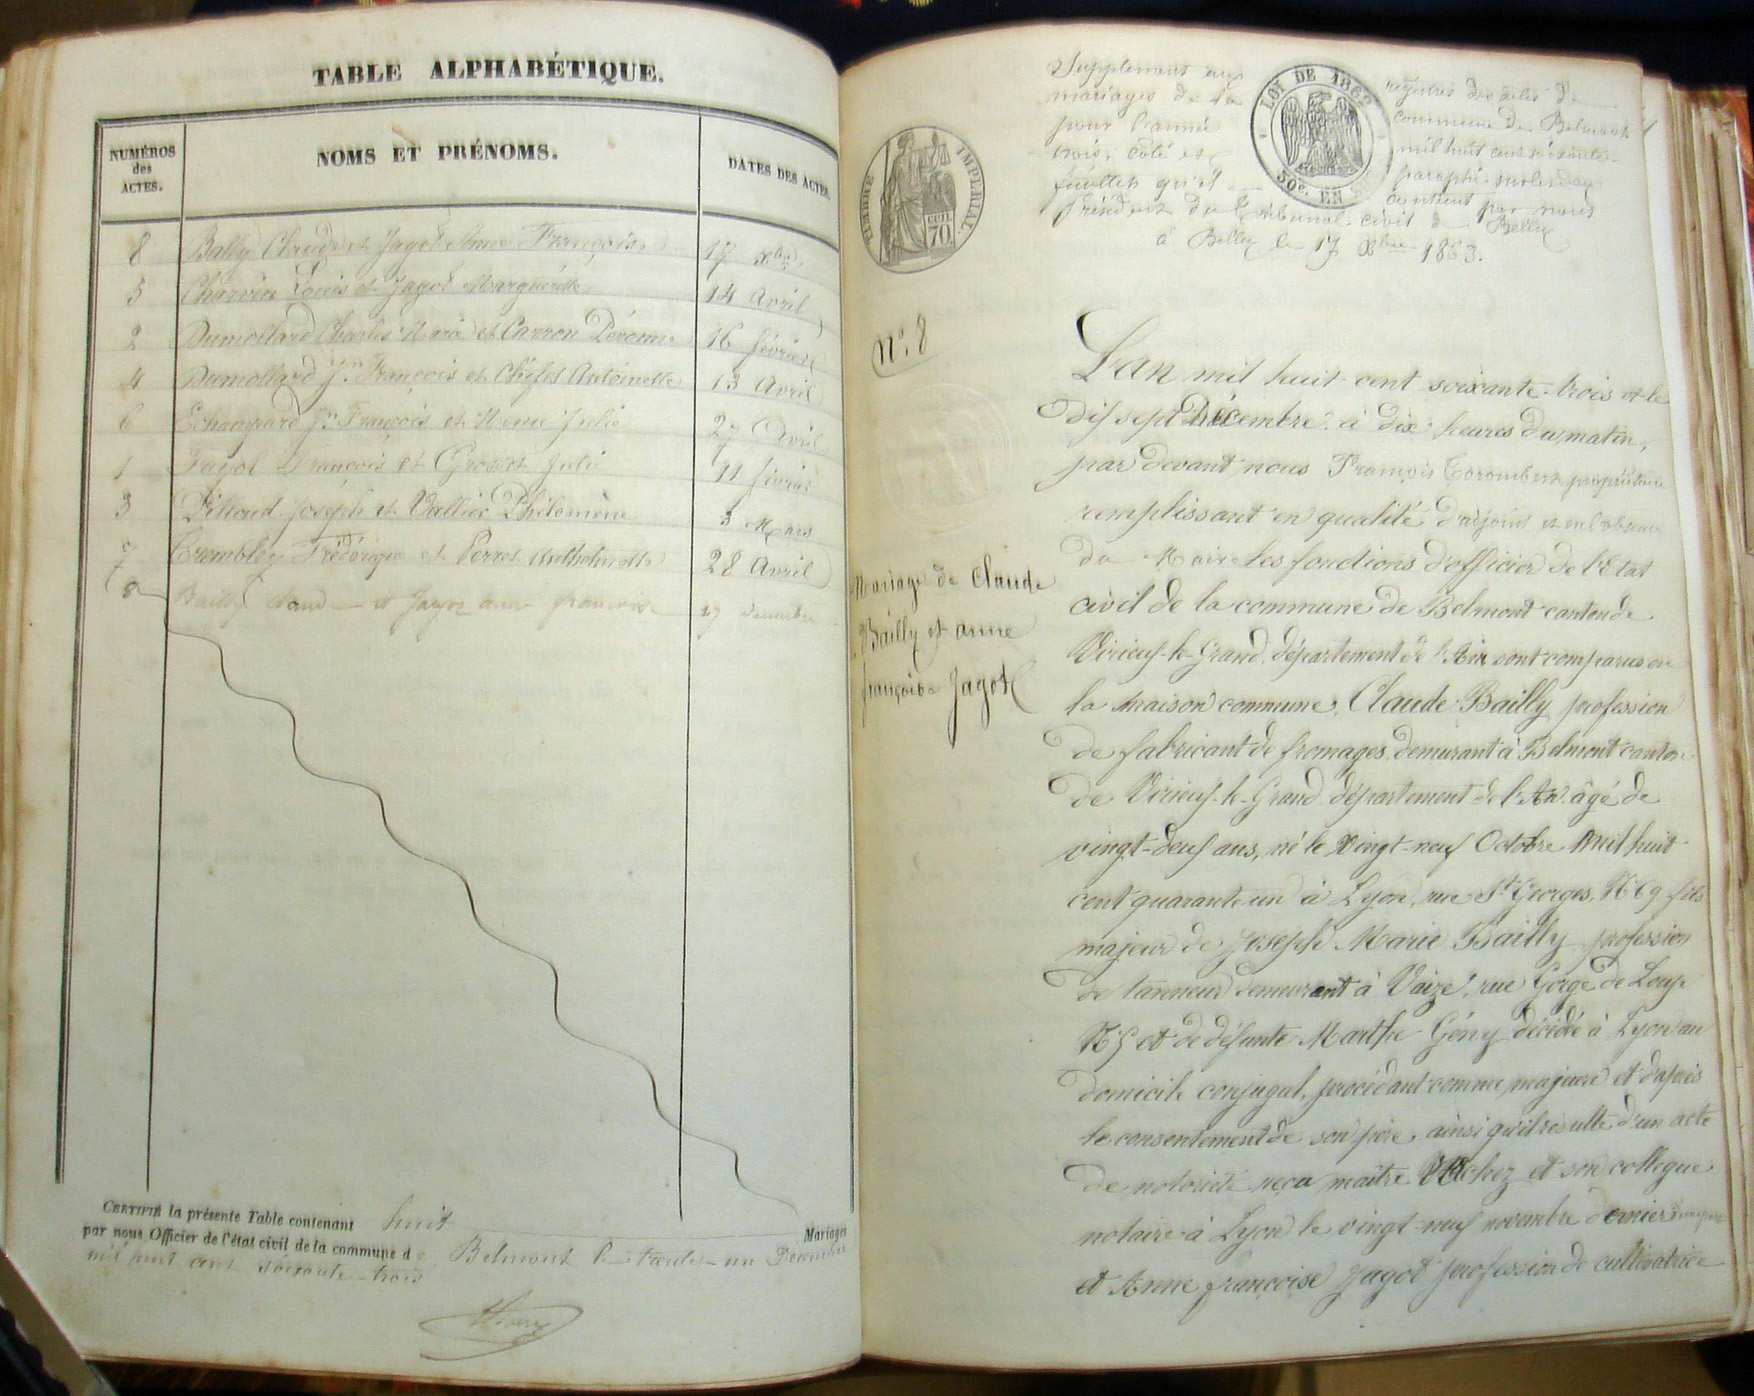 TABLE ALPHABÉTIQUE.
NUMÉROS
des
ACTES.
NOMS ET PRÉNOMS.
DATES DES ACTES.
8 Bailly Claude et Jagot Anne Françoise 17 Xbre
5 Charvin Louis et Jagot Marguerite 14 Avril
2 Dumollard Charles Marie et Carron 16 février
4 Dumollard Jn François et Antoinette 13 Avril
6 Jn François et Julie 27 Avril
1 François et Julie 11 février
3 Joseph et Vallier Philomène 3 Mars
7 Frédérique et Perret 28 Avril
8 Bailly Claude et Jagot anne françoise 17 décembre
CERTIFIÉ la présente Table contenant huit Mariages
par nous Officier de l'état civil de la commune de Belmont le trente-un Décembre
mil huit cent soixante-trois
TIMBRE IMPÉRIAL
70
LOI DE 1862
50c. EN
Supplément aux registres des actes de
mariages de la commune de Belmont
pour l'année mil huit cent soixante-
trois; côté et paraphé
feuillets qu'il contient par nous
Président du Tribunal civil de Belley
à Belley le 17 Xbre 1863.
No. 8
Mariage de Claude
Bailly et anne
françoise Jagot
L'an mil huit cent soixante-trois et le
dix sept Décembre à dix heures du matin,
par devant nous François propriétaire
remplissant en qualité d'adjoint et en l'absence
du Maire les fonctions d'officier de l'Etat
civil de la commune de Belmont canton de
Virieux-le-Grand, département de l'Ain sont comparus en
la maison commune, Claude Bailly profession
de fabricant de fromages, demurant à Belmont canton
de Virieux-le-Grand département de l'Ain âgé de
vingt-deux ans, né le vingt-neuf Octobre mil huit
cent quarante un à Lyon, rue St Georges, N 69 fils
majeur de Joseph Marie Bailly profession
de tanneur demeurant à Vaize, rue Gorge de Loup
N 5 et de défunte Marthe Gény décédée à Lyon au
domicile conjugal, procédant comme majeur et d'après
le consentement de son père, ainsi qu'il résulte d'un acte
de notoriété reçu maître et son collègue
notaire à Lyon le vingt-neuf novembre dernier
et Anne françoise Jagot profession de cultivatrice